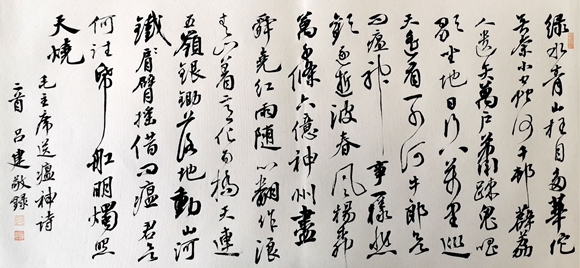 绿水青山枉自多華佗
無奈小虫何千邨薜荔
人遗矢萬户蕭疎鬼唱
歌坐地日行八万里巡
天遥看一千河牛郎欲
问瘟神事一樣悲
歡逐逝波春風楊柳
萬千條六億神州盡
舜堯红雨随心翻作浪
青山着意化为橋天連
五嶺银锄落地動山河
鐵臂摇借问瘟君欲
何往纸船明燭照
天燒
毛主席送瘟神诗
二首 吕建敬錄